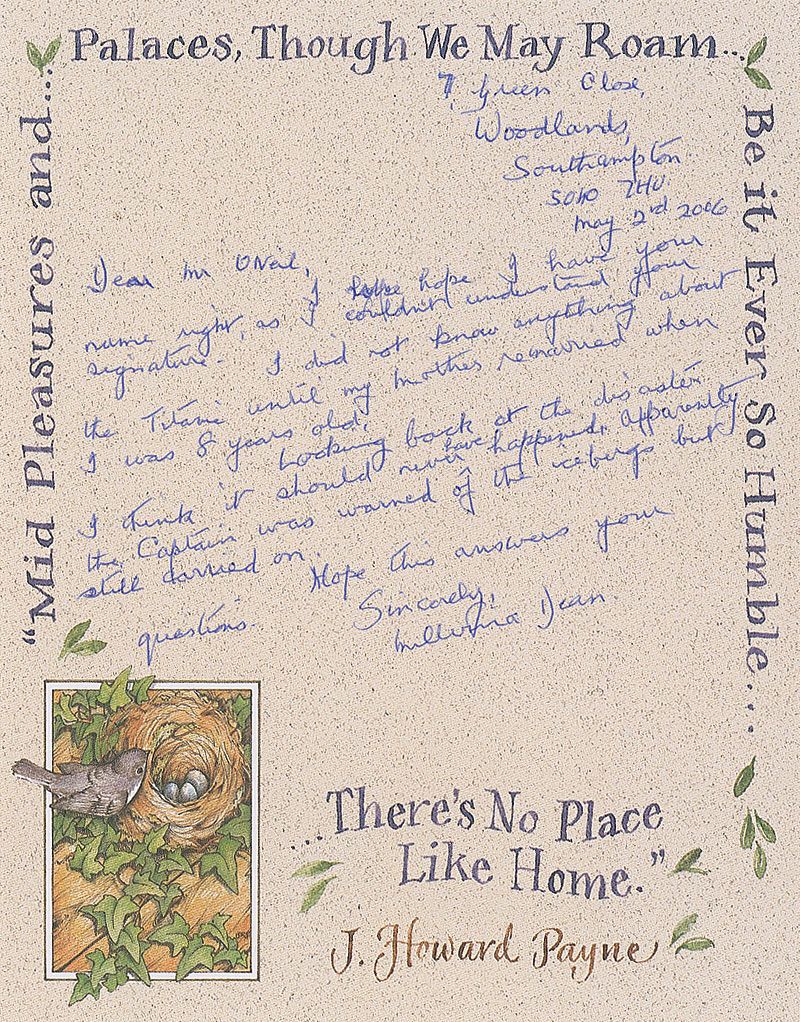 "Mid Pleasures and...
Palaces, Though We May Roam...
Be it Ever So Humble...
7, Green Close,
Woodlands,
Southampton
SO40 7HU.
May 2nd 2006
Dear Mr ONeil,
I hope I have your
name right, as I couldn't understand your
signature. I did not know anything about
the Titanic until my Mother remarried when
I was 8 years old.
Looking back at the disaster
I think it should never have happened, apparently
the Captain was warned of the icebergs but
still carried on.
Hope this answers your
questions.
Sincerely,
Millvina Dean.
...There's No Place
Like Home."
J. Howard Payne